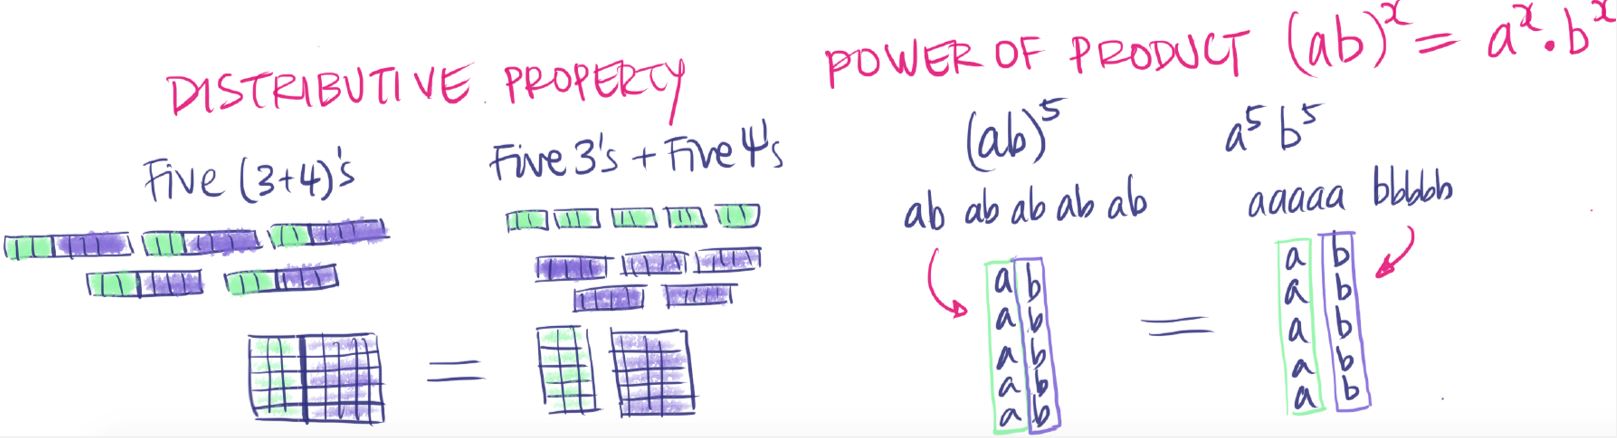 DISTRIBUTIVE PROPERTY
Five (3+4)'s
Five 3's + Five 4's
=
POWER OF PRODUCT (ab)^x = a^x · b^x
(ab)^5
a^5 b^5
ab ab ab ab ab
aaaaa bbbbb
a b
a b
a b
a b
a b
=
a b
a b
a b
a b
a b